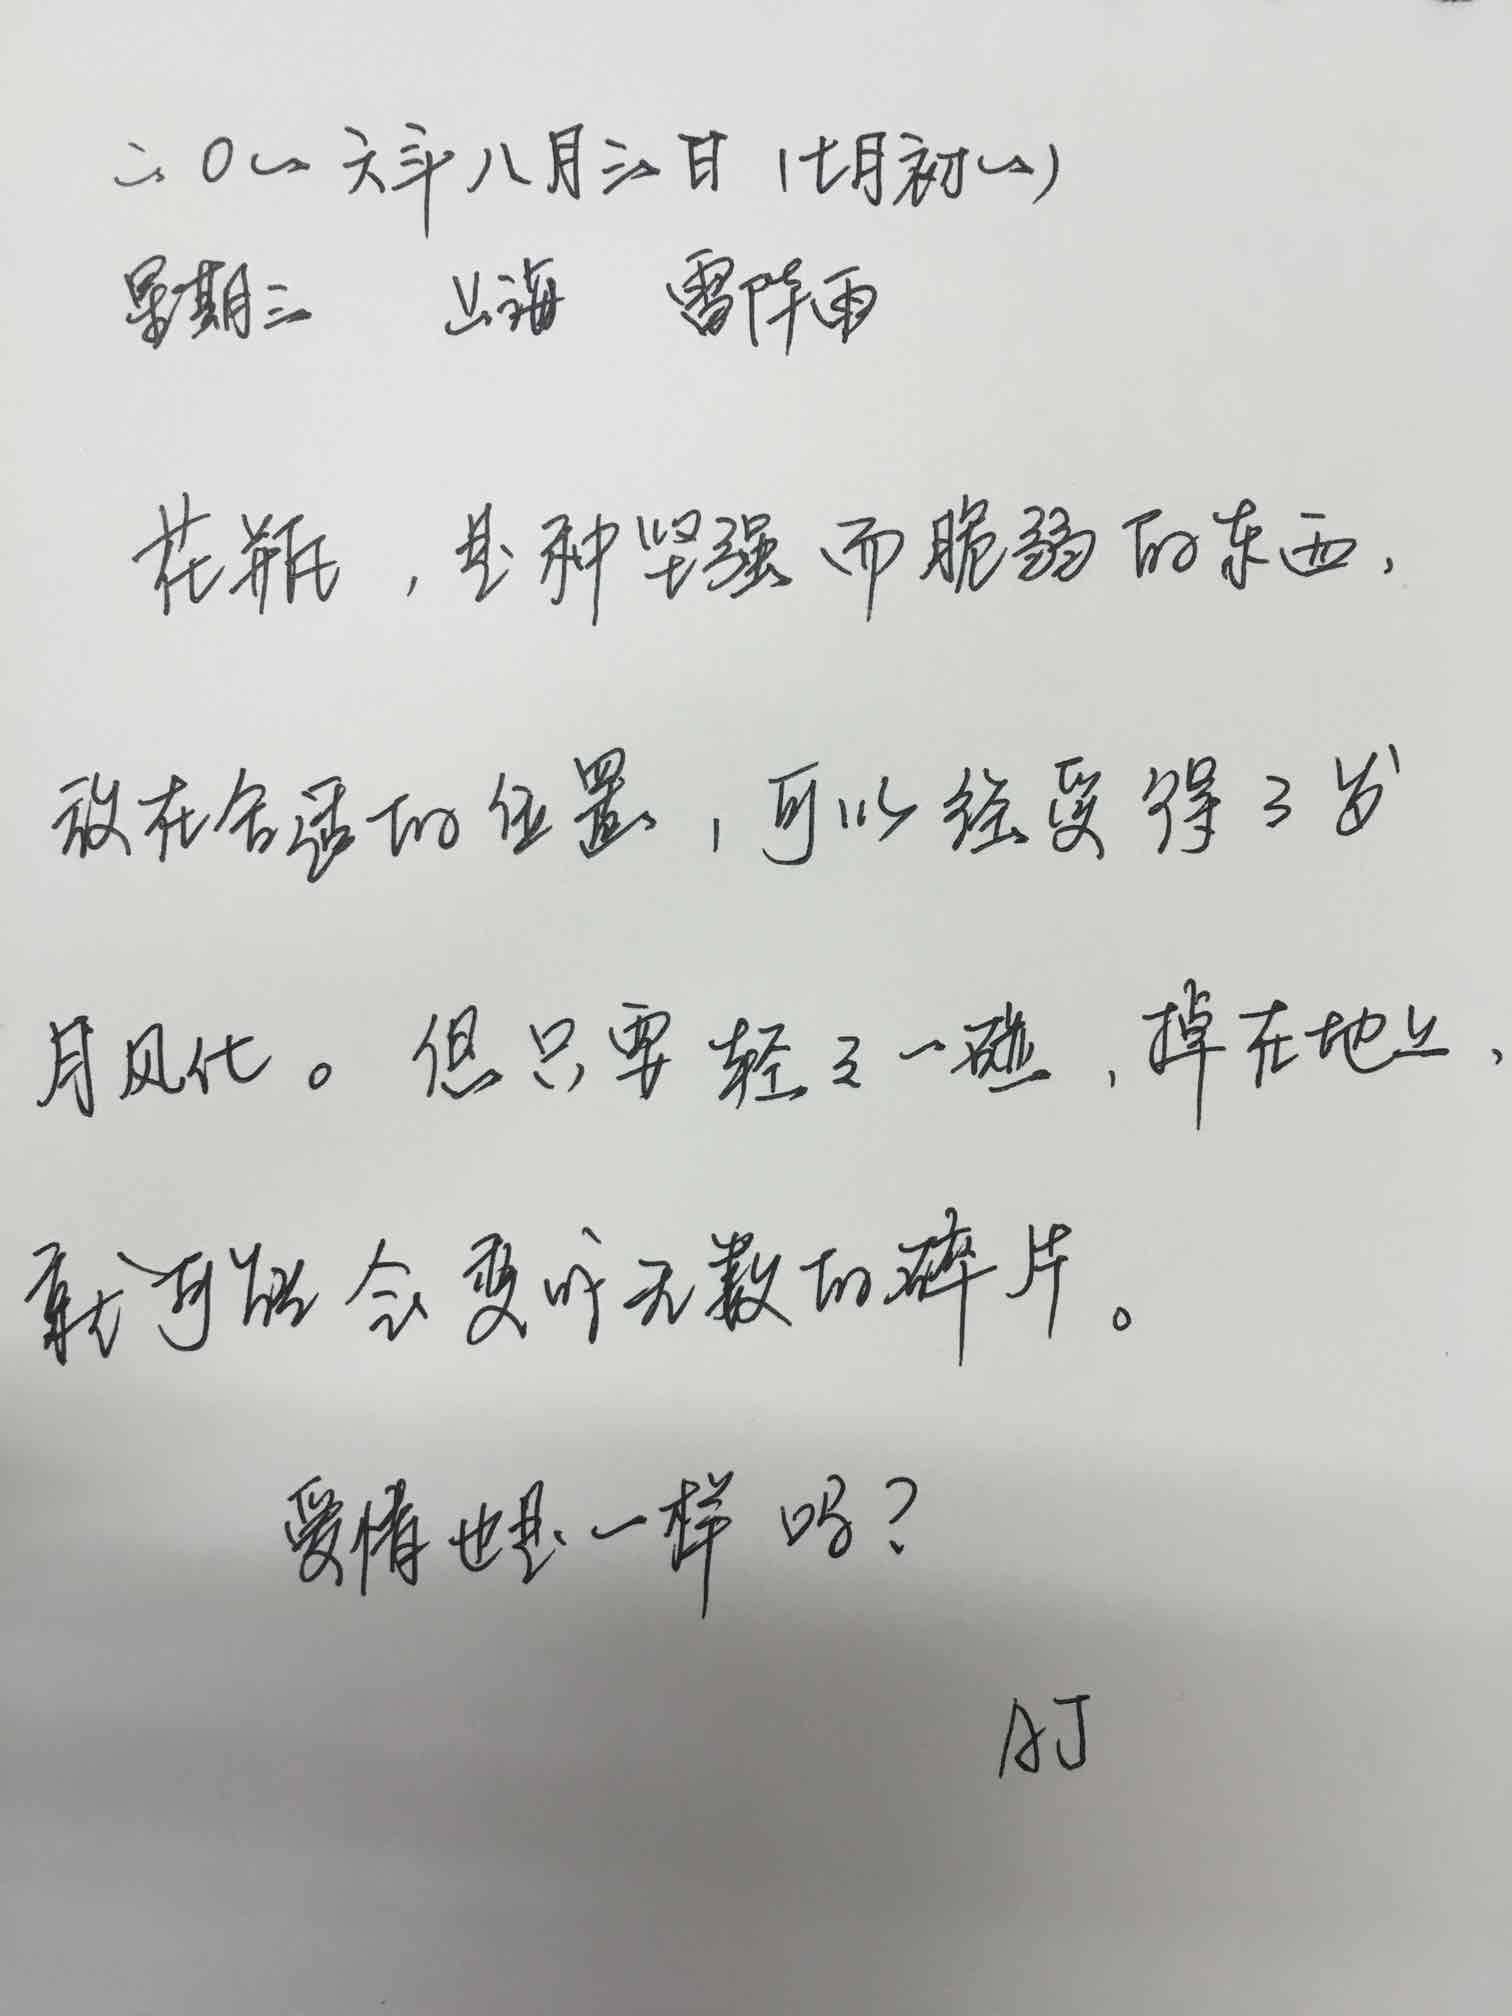 二〇一六年八月三日(七月初一)
星期三 上海 雷阵雨
花瓶,是种坚强而脆弱的东西,
放在合适的位置,可以经受得了岁
月风化。但只要轻々一碰,掉在地上,
就可能会变成无数的碎片。
爱情也是一样吗?
AJ